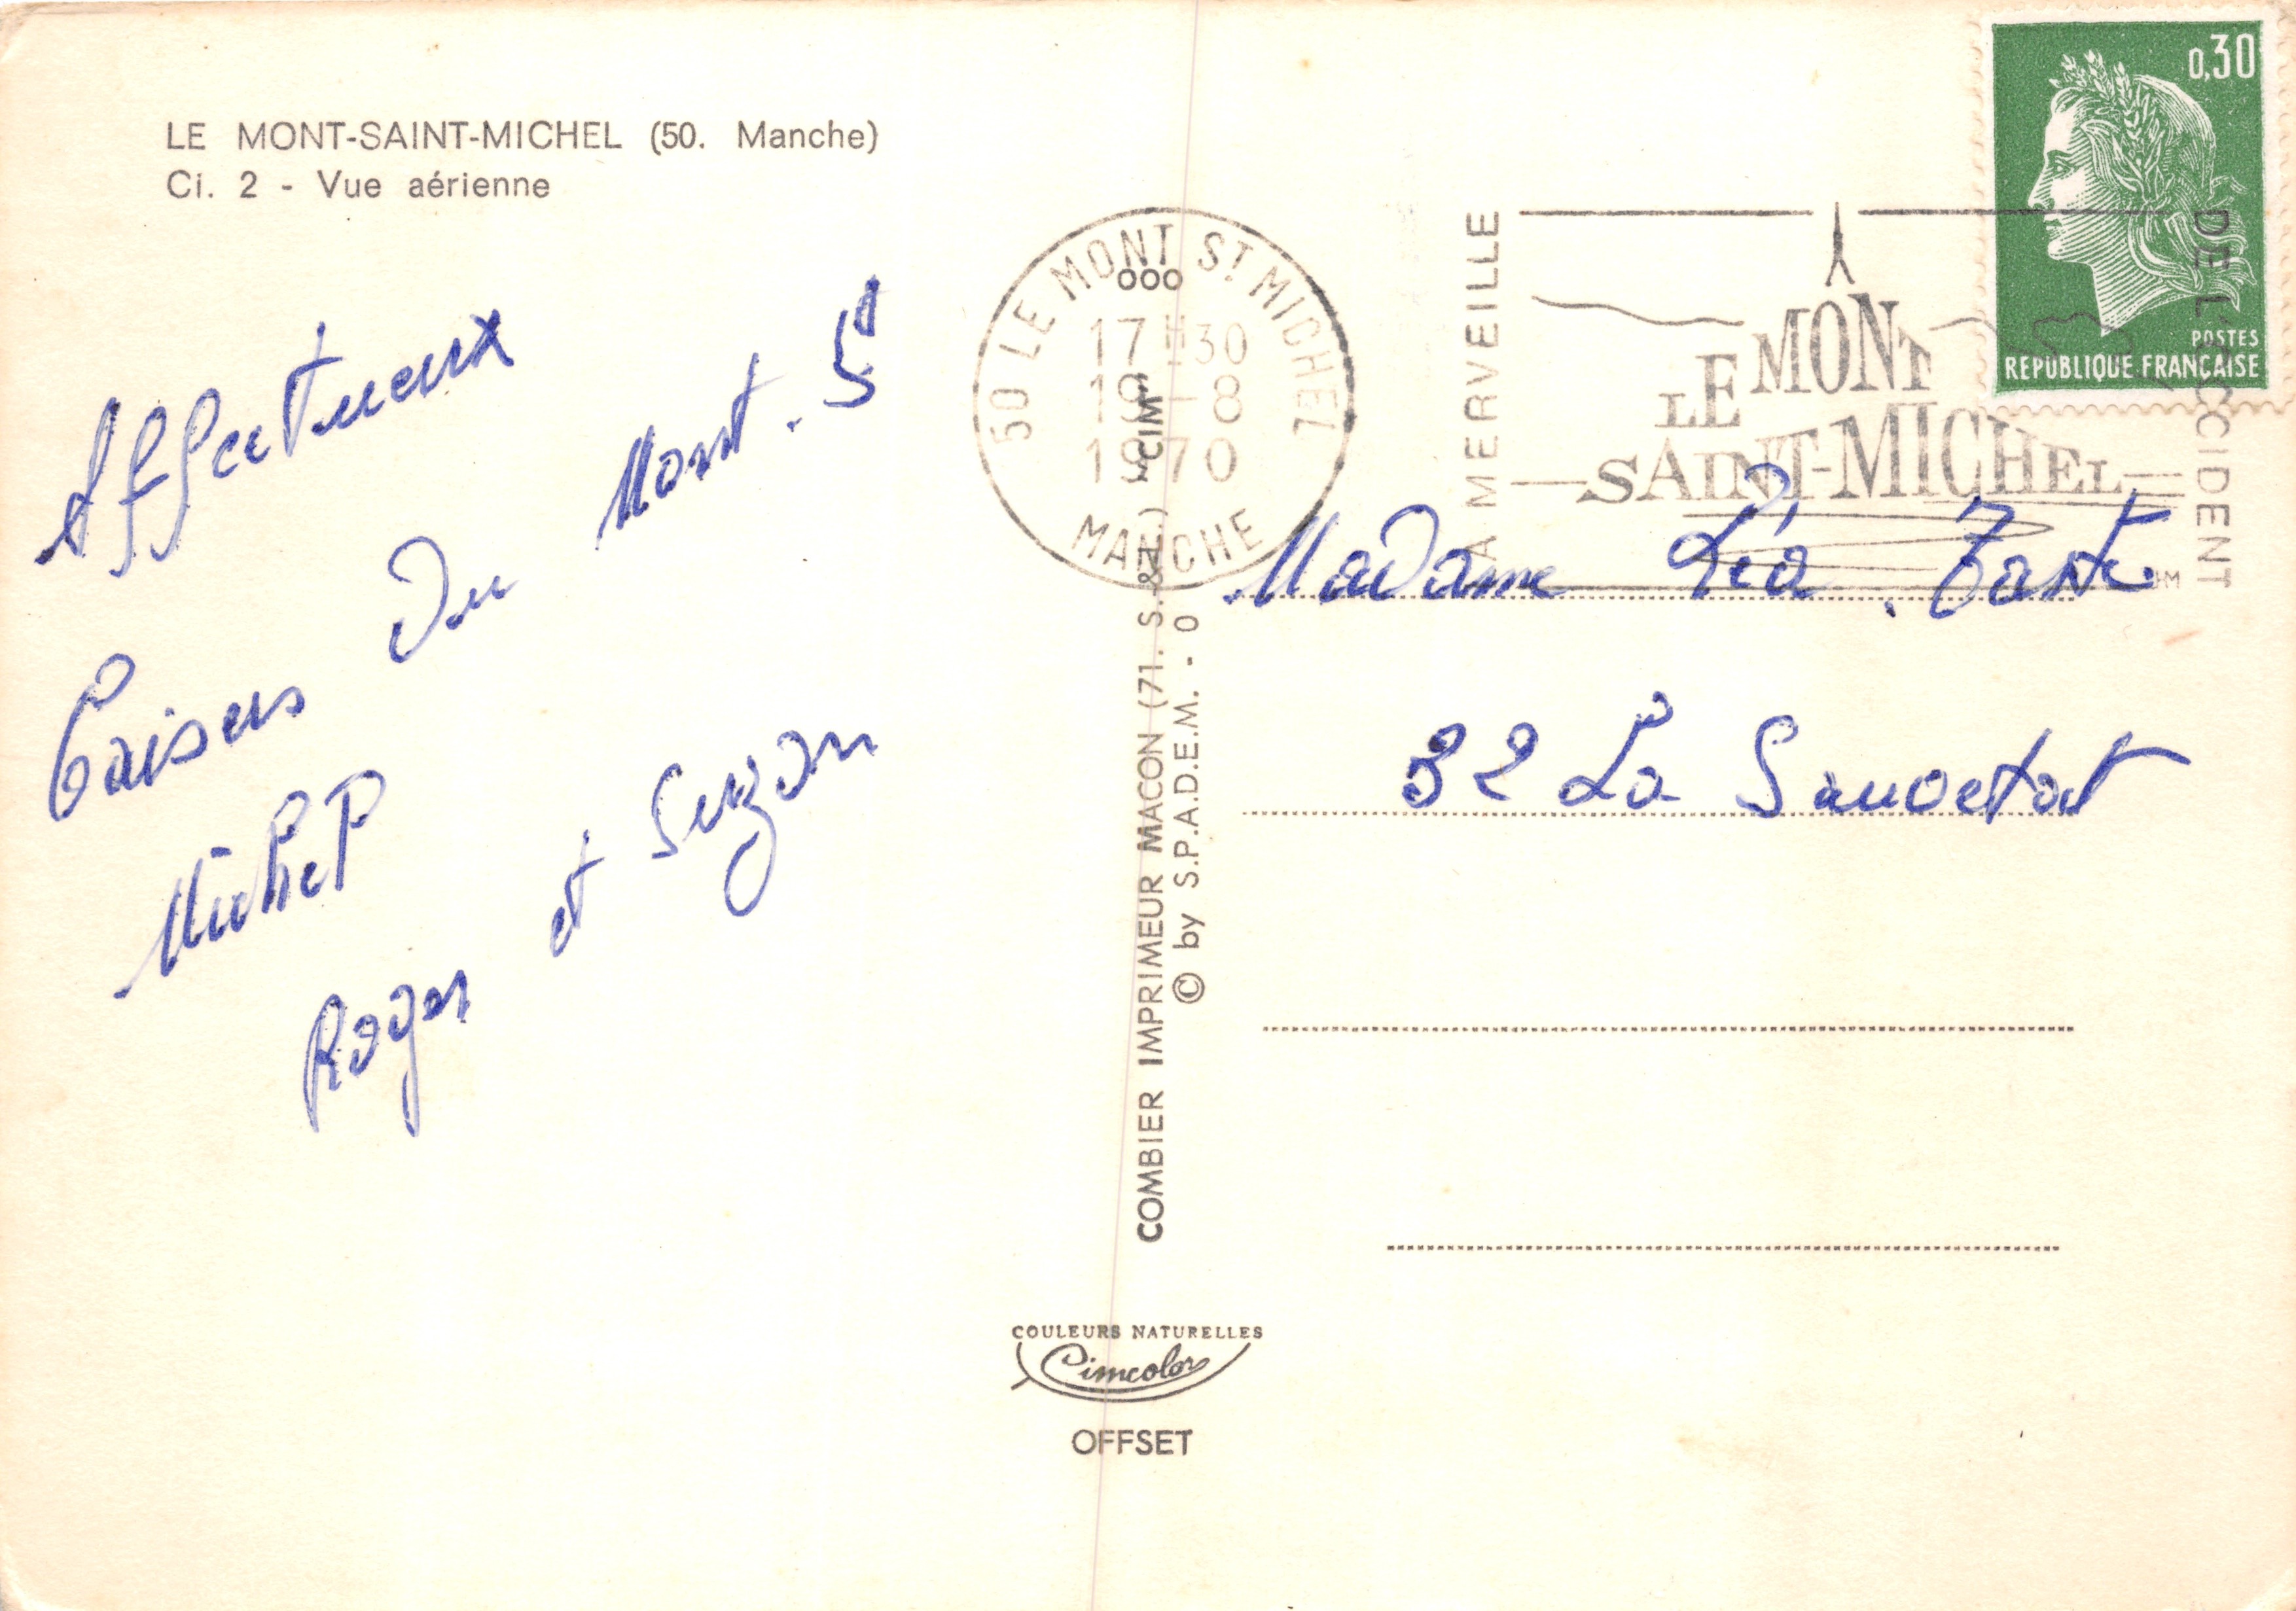 LE MONT-SAINT-MICHEL (50. Manche)
Ci. 2 - Vue aérienne
Affectueux
baisers du Mont. St
Michel
Roger et Suzon
50 LE MONT ST MICHEL
17H30
19-8
1970
MANCHE
LA MERVEILLE
LE MONT
SAINT-MICHEL
DE L'OCCIDENT
0,30
POSTES
REPUBLIQUE FRANÇAISE
Madame Léa
32 La Sauvetat
COMBIER IMPRIMEUR MACON (71. S.-&-L.) "CIM"
© by S.P.A.D.E.M. - 0
COULEURS NATURELLES
Cimcolor
OFFSET